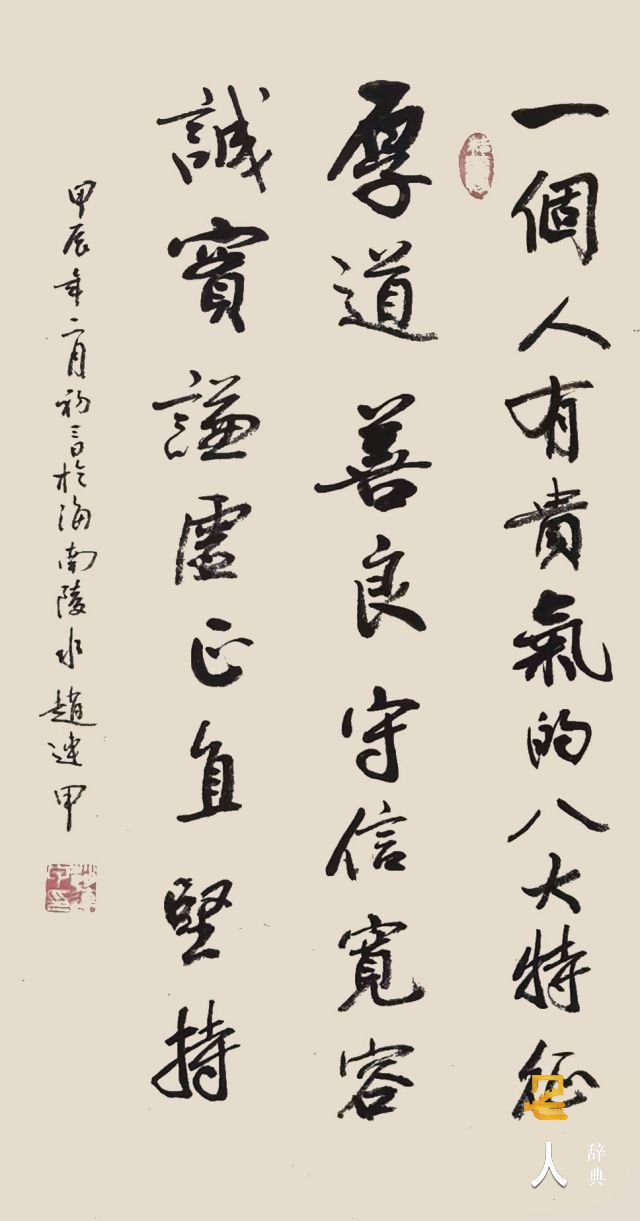 一個人有貴氣的八大特征
厚道善良守信寬容
誠實謙虛正直堅持
甲辰年二月初言於海南陵水趙連甲
人
辞典